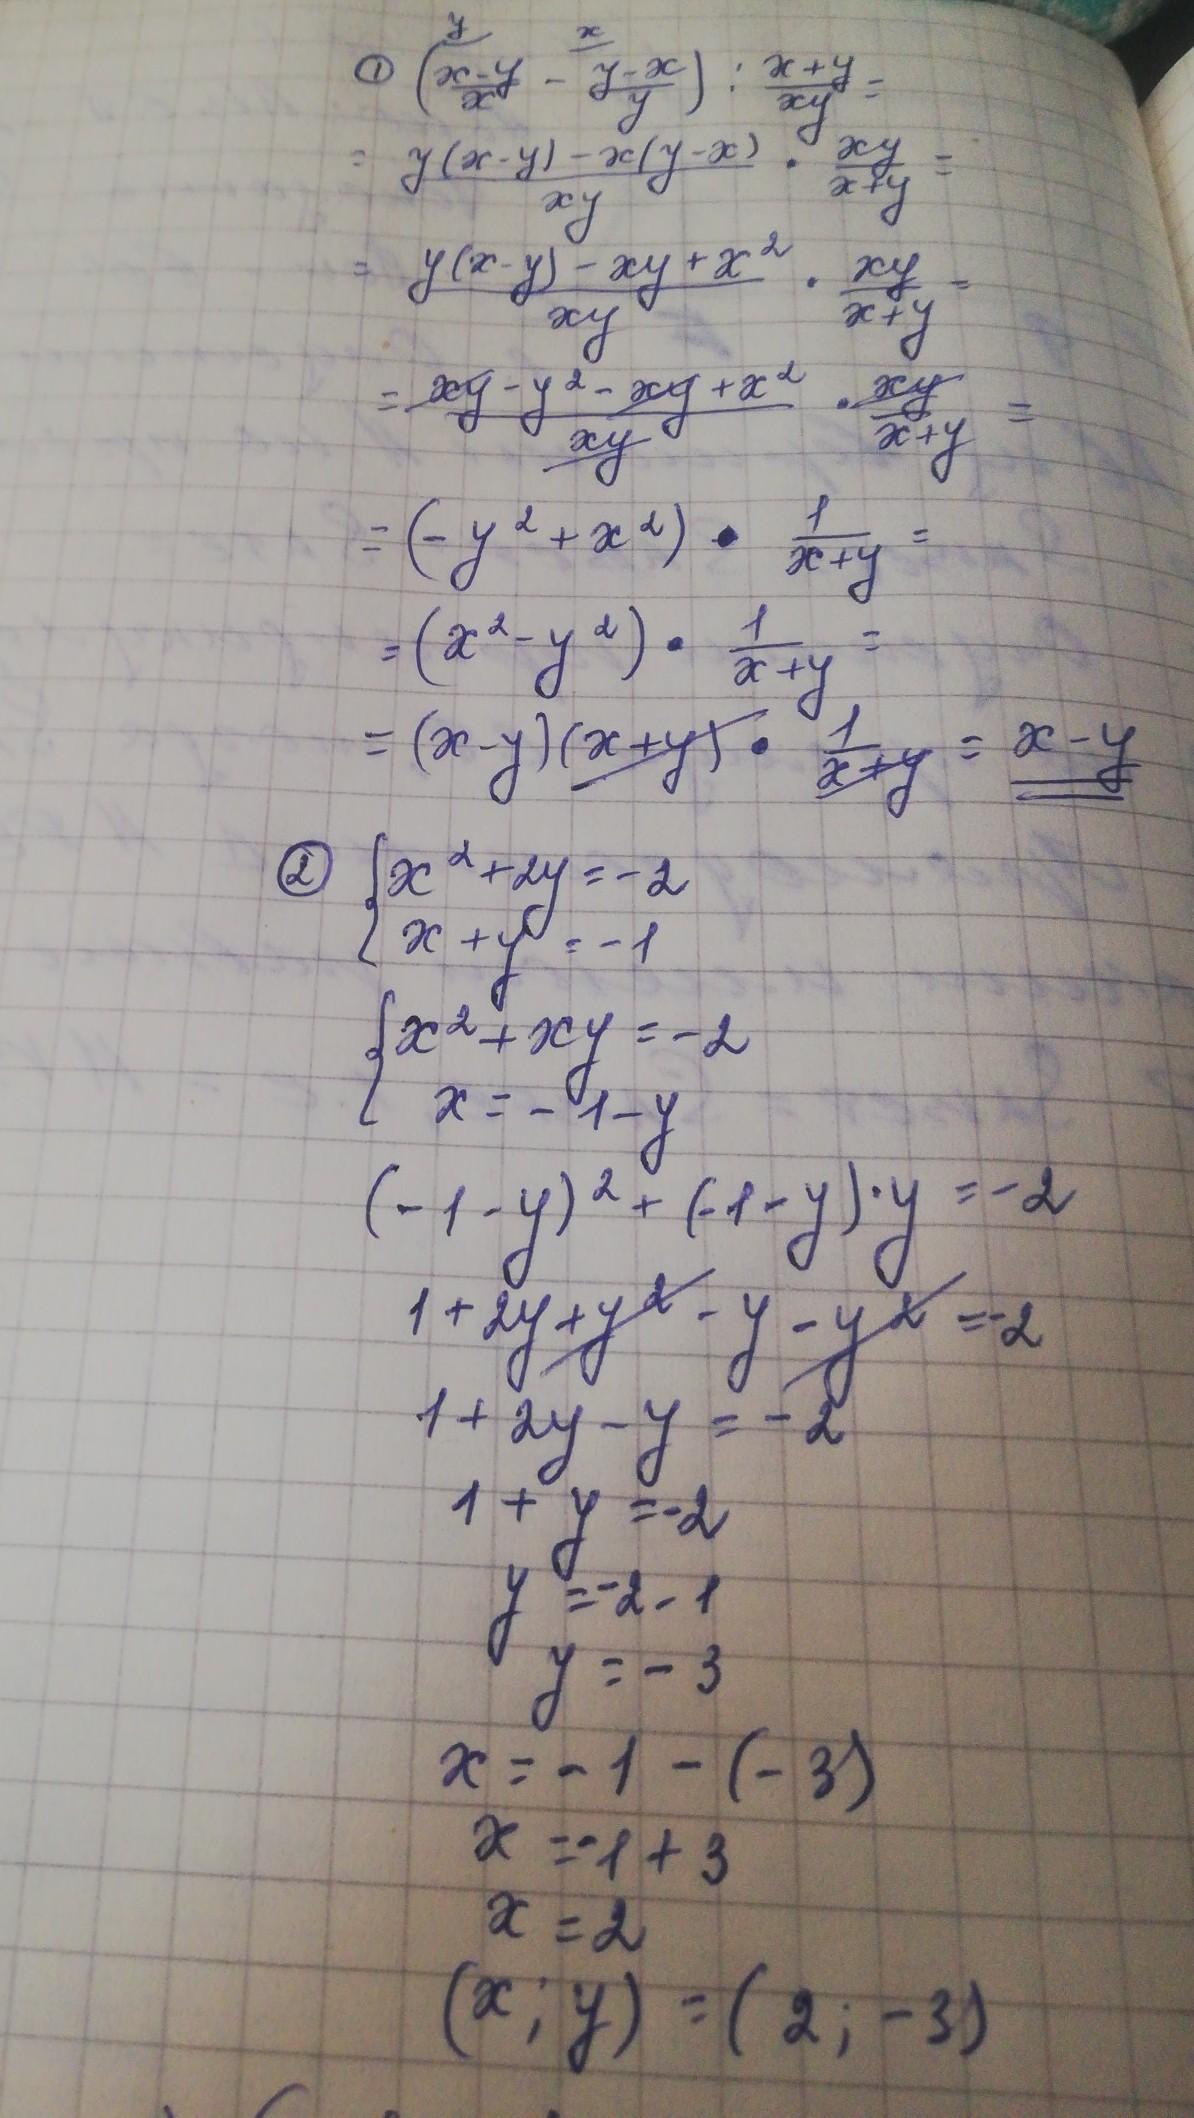 ① (x-y/x - y-x/y) : x+y/xy =
= y(x-y) - x(y-x)/xy · xy/x+y =
= y(x-y) - xy + x²/xy · xy/x+y =
= xy - y² - xy + x²/xy · xy/x+y =
= (-y² + x²) · 1/x+y =
= (x² - y²) · 1/x+y =
= (x-y)(x+y) · 1/x+y = x-y
② { x² + 2y = -2
x + y = -1
{ x² + xy = -2
x = -1-y
(-1-y)² + (-1-y)·y = -2
1 + 2y + y² - y - y² = -2
1 + 2y - y = -2
1 + y = -2
y = -2-1
y = -3
x = -1 - (-3)
x = -1 + 3
x = 2
(x; y) = (2; -3)